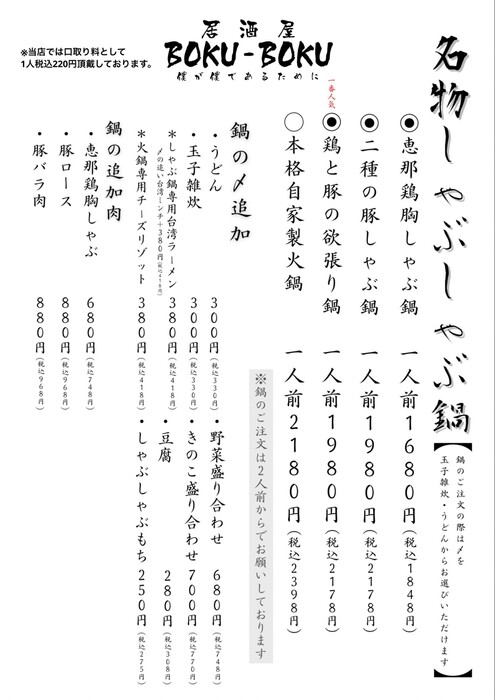 居酒屋
BOKU-BOKU
僕が僕であるために
※当店では口取り料として
1人税込220円頂戴しております。
名物しゃぶしゃぶ鍋
【鍋のご注文の際は〆を
玉子雑炊・うどんからお選びいただけます】
◉恵那鶏胸しゃぶ鍋 一人前1680円(税込1848円)
◉二種の豚しゃぶ鍋 一人前1980円(税込2178円)
一番人気
◉鶏と豚の欲張り鍋 一人前1980円(税込2178円)
○本格自家製火鍋 一人前2180円(税込2398円)
※鍋のご注文は2人前からでお願いしております
鍋の〆追加
・うどん 300円(税込330円)
・玉子雑炊 300円(税込330円)
*しゃぶ鍋専用台湾ラーメン 380円(税込418円)
〆の追い台湾ミンチ+380円(税込418円)
*火鍋専用チーズリゾット 380円(税込418円)
鍋の追加肉
・恵那鶏胸しゃぶ 680円(税込748円)
・豚ロース 880円(税込968円)
・豚バラ肉 880円(税込968円)
・野菜盛り合わせ 680円(税込748円)
・きのこ盛り合わせ 700円(税込770円)
・豆腐 280円(税込308円)
・しゃぶしゃぶもち 250円(税込275円)